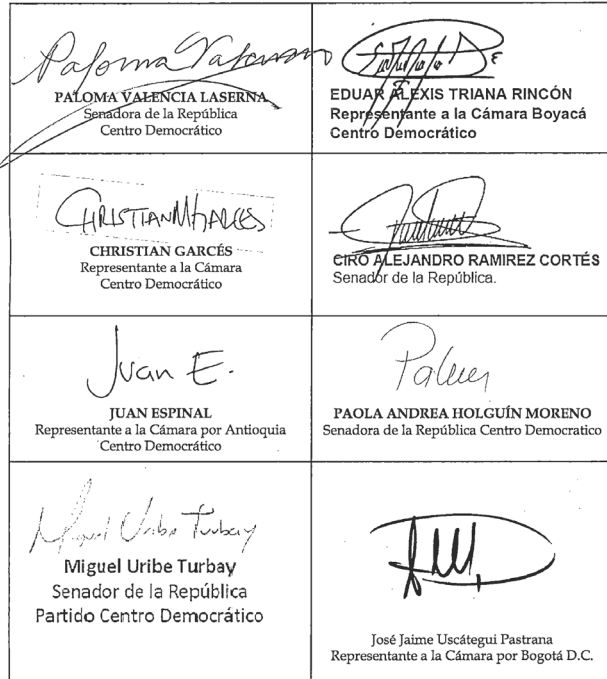 Paloma Valencia
PALOMA VALENCIA LASERNA
Senadora de la República
Centro Democrático
EDUAR ALEXIS TRIANA RINCÓN
Representante a la Cámara Boyacá
Centro Democrático
CHRISTIANMGARCES
CHRISTIAN GARCÉS
Representante a la Cámara
Centro Democrático
CIRO ALEJANDRO RAMIREZ CORTÉS
Senador de la República.
Juan E.
JUAN ESPINAL
Representante a la Cámara por Antioquia
Centro Democrático
PAOLA ANDREA HOLGUÍN MORENO
Senadora de la República Centro Democratico
Miguel Uribe Turbay
Miguel Uribe Turbay
Senador de la República
Partido Centro Democrático
José Jaime Uscátegui Pastrana
Representante a la Cámara por Bogotá D.C.